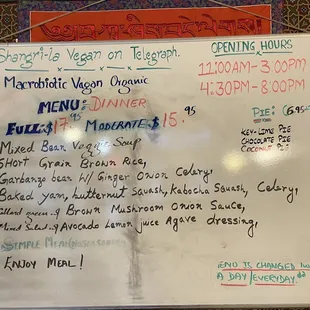 Shangri-la Vegan on Telegraph.
Macrobiotic Vegan Organic
MENU: DINNER
FULL: $17.95 MODERATE $15.95
Mixed Bean Veggie Soup
Short Grain Brown Rice,
Garbanzo bean w/ Ginger Onion Celery,
Baked yam, butternut Squash, Kabocha Squash, Celery,
Brown Mushroom Onion Sauce,
Avocado Lemon juice Agave dressing,
ENJOY MEAL!
OPENING HOURS
11:00AM-3:00PM
4:30PM-8:00PM
PIE:
KEY-LIME PIE
CHOCOLATE PIE
COCONUT PIE
MENU IS CHANGED
A DAY/EVERYDAY.